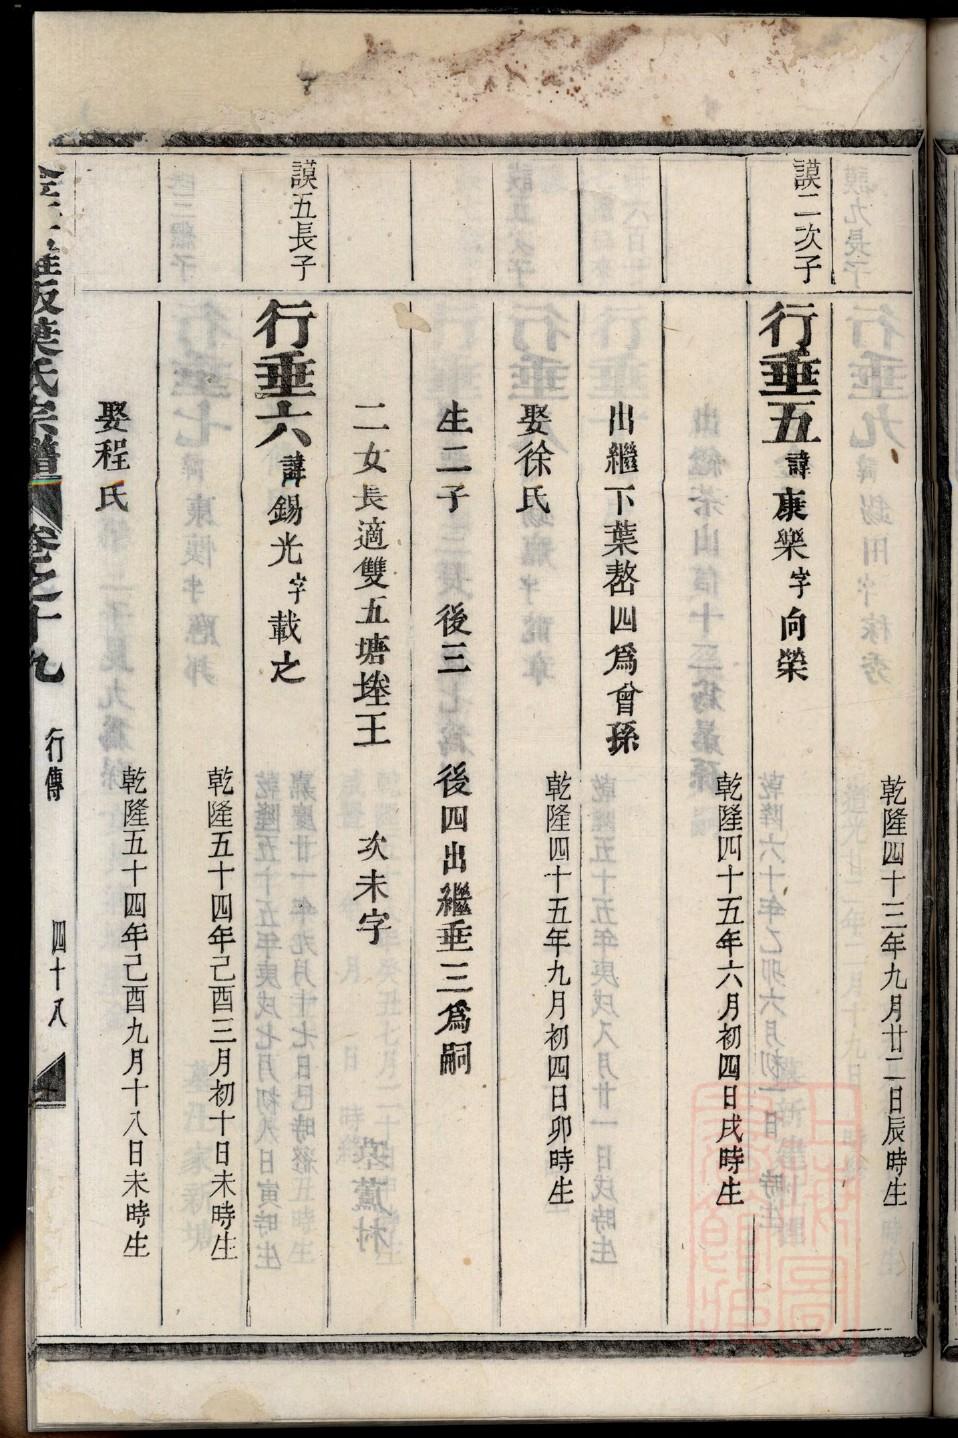 乾隆四十三年九月廿二日辰時生
謨二次子
行垂五諱康樂字向榮
乾隆四十五年六月初四日戌時生
出繼下葉嶅四爲曾孫
娶徐氏
乾隆四十五年九月初四日卯時生
生二子 後三 後四出繼垂三爲嗣
二女長適雙五塘塰王 次未字
墓蘆村
謨五長子
行垂六諱錫光字載之
乾隆五十四年己酉三月初十日未時生
娶程氏
乾隆五十四年己酉九月十八日未時生
葉氏宗譜 卷之十九 行傳 四十八